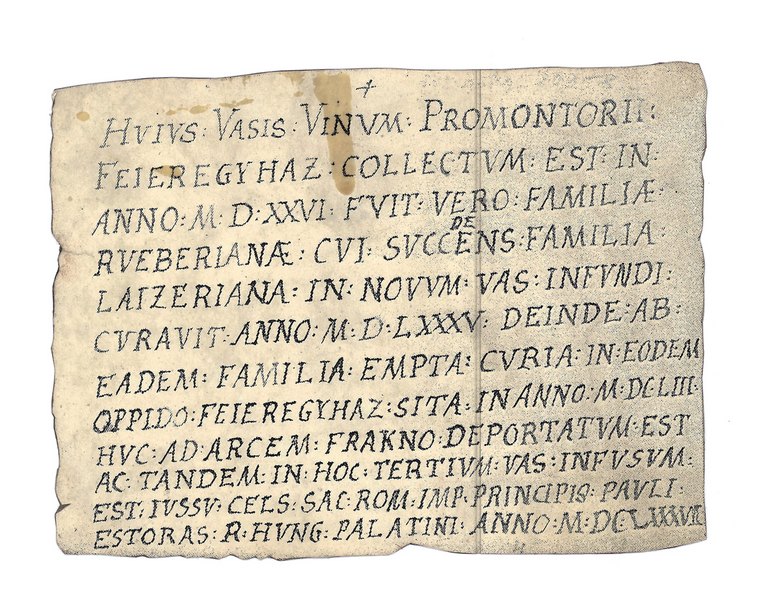 +
HVIVS: VASIS: VINVM: PROMONTORII:
FEIEREGYHAZ: COLLECTVM: EST: IN:
ANNO: M: D: XXVI: FVIT: VERO: FAMILIÆ:
RVEBERIANÆ: CVI: SVCCEDENS: FAMILIA:
LAIZERIANA: IN: NOVVM: VAS: INFVNDI:
CVRAVIT: ANNO: M: D: LXXXV: DEINDE: AB:
EADEM: FAMILIA: EMPTA: CVRIA: IN: EODEM
OPPIDO: FEIEREGYHAZ: SITA: IN ANNO: M: DCLIII:
HVC: AD: ARCEM: FRAKNO: DEPORTATVM: EST
AC: TANDEM: IN: HOC: TERTIVM: VAS: INFVSVM:
EST: IVSSV: CELS: SAC: ROM: IMP: PRINCIPIS: PAVLI:
ESTORAS: R: HVNG: PALATINI: ANNO: M: DCLXXXVII